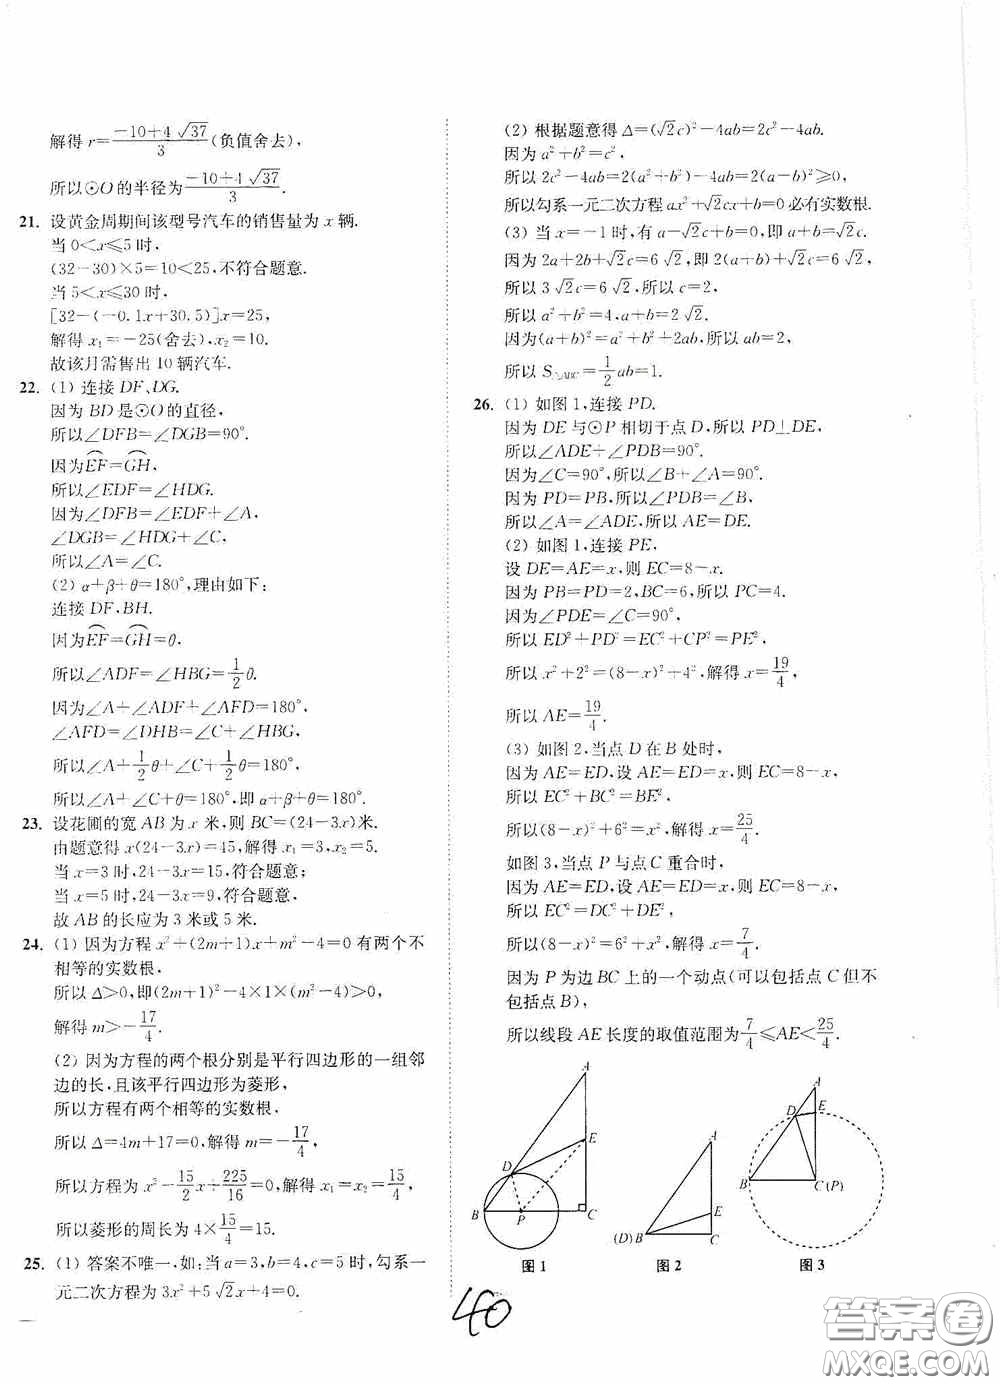 解得 r=(-10+4√37)/3(负值舍去),
所以⊙O 的半径为(-10+4√37)/3.
21. 设黄金周期间该型号汽车的销售量为 x 辆.
当 0<x≤5 时,
(32-30)×5=10<25,不符合题意.
当 5<x≤30 时,
[32-(-0.1x+30.5)]x=25,
解得 x₁=-25(舍去),x₂=10.
故该月需售出 10 辆汽车.
22. (1) 连接 DF、DG.
因为 BD 是⊙O 的直径,
所以∠DFB=∠DGB=90°.
因为⌒EF=⌒GH,
所以∠EDF=∠HDG.
因为∠DFB=∠EDF+∠A,
∠DGB=∠HDG+∠C,
所以∠A=∠C.
(2) α+β+θ=180°,理由如下:
连接 DF、BH.
因为⌒EF=⌒GH=θ,
所以∠ADF=∠HBG=1/2θ.
因为∠A+∠ADF+∠AFD=180°,
∠AFD=∠DHB=∠C+∠HBG,
所以∠A+1/2θ+∠C+1/2θ=180°,
所以∠A+∠C+θ=180°,即 α+β+θ=180°.
23. 设花圃的宽 AB 为 x 米,则 BC=(24-3x)米.
由题意得 x(24-3x)=45,解得 x₁=3,x₂=5.
当 x=3 时,24-3x=15,符合题意;
当 x=5 时,24-3x=9,符合题意.
故 AB 的长应为 3 米或 5 米.
24. (1) 因为方程 x²+(2m+1)x+m²-4=0 有两个不
相等的实数根,
所以 Δ>0,即(2m+1)²-4×1×(m²-4)>0,
解得 m>-17/4.
(2) 因为方程的两个根分别是平行四边形的一组邻
边的长,且该平行四边形为菱形,
所以方程有两个相等的实数根,
所以 Δ=4m+17=0,解得 m=-17/4,
所以方程为 x²-15/2x+225/16=0,解得 x₁=x₂=15/4,
所以菱形的周长为 4×15/4=15.
25. (1) 答案不唯一,如:当 a=3,b=4,c=5 时,勾系一
元二次方程为 3x²+5√2x+4=0.
(2) 根据题意得 Δ=(√2c)²-4ab=2c²-4ab.
因为 a²+b²=c²,
所以 2c²-4ab=2(a²+b²)-4ab=2(a-b)²≥0,
所以勾系一元二次方程 ax²+√2cx+b=0 必有实数根.
(3) 当 x=-1 时,有 a-√2c+b=0,即 a+b=√2c.
因为 2a+2b+√2c=6√2,即 2(a+b)+√2c=6√2,
所以 3√2c=6√2,所以 c=2,
所以 a²+b²=4,a+b=2√2.
因为(a+b)²=a²+b²+2ab,所以 ab=2,
所以 S△ABC=1/2ab=1.
26. (1) 如图 1,连接 PD.
因为 DE 与⊙P 相切于点 D,所以 PD⊥DE,
所以∠ADE+∠PDB=90°.
因为∠C=90°,所以∠B+∠A=90°.
因为 PD=PB,所以∠PDB=∠B,
所以∠A=∠ADE,所以 AE=DE.
(2) 如图 1,连接 PE,
设 DE=AE=x,则 EC=8-x.
因为 PB=PD=2,BC=6,所以 PC=4.
因为∠PDE=∠C=90°,
所以 ED²+PD²=EC²+CP²=PE²,
所以 x²+2²=(8-x)²+4²,解得 x=19/4,
所以 AE=19/4.
(3) 如图 2,当点 D 在 B 处时,
因为 AE=ED,设 AE=ED=x,则 EC=8-x,
所以 EC²+BC²=BE²,
所以(8-x)²+6²=x²,解得 x=25/4.
如图 3,当点 P 与点 C 重合时,
因为 AE=ED,设 AE=ED=x,则 EC=8-x,
所以 EC²=DC²+DE²,
所以(8-x)²=6²+x²,解得 x=7/4.
因为 P 为边 BC 上的一个动点(可以包括点 C 但不
包括点 B),
所以线段 AE 长度的取值范围为7/4≤AE<25/4.
A
E
D
B
P
C
图 1
A
E
(D)B
C
图 2
A
D
E
B
C(P)
图 3
40
答案圈
MXQE.COM